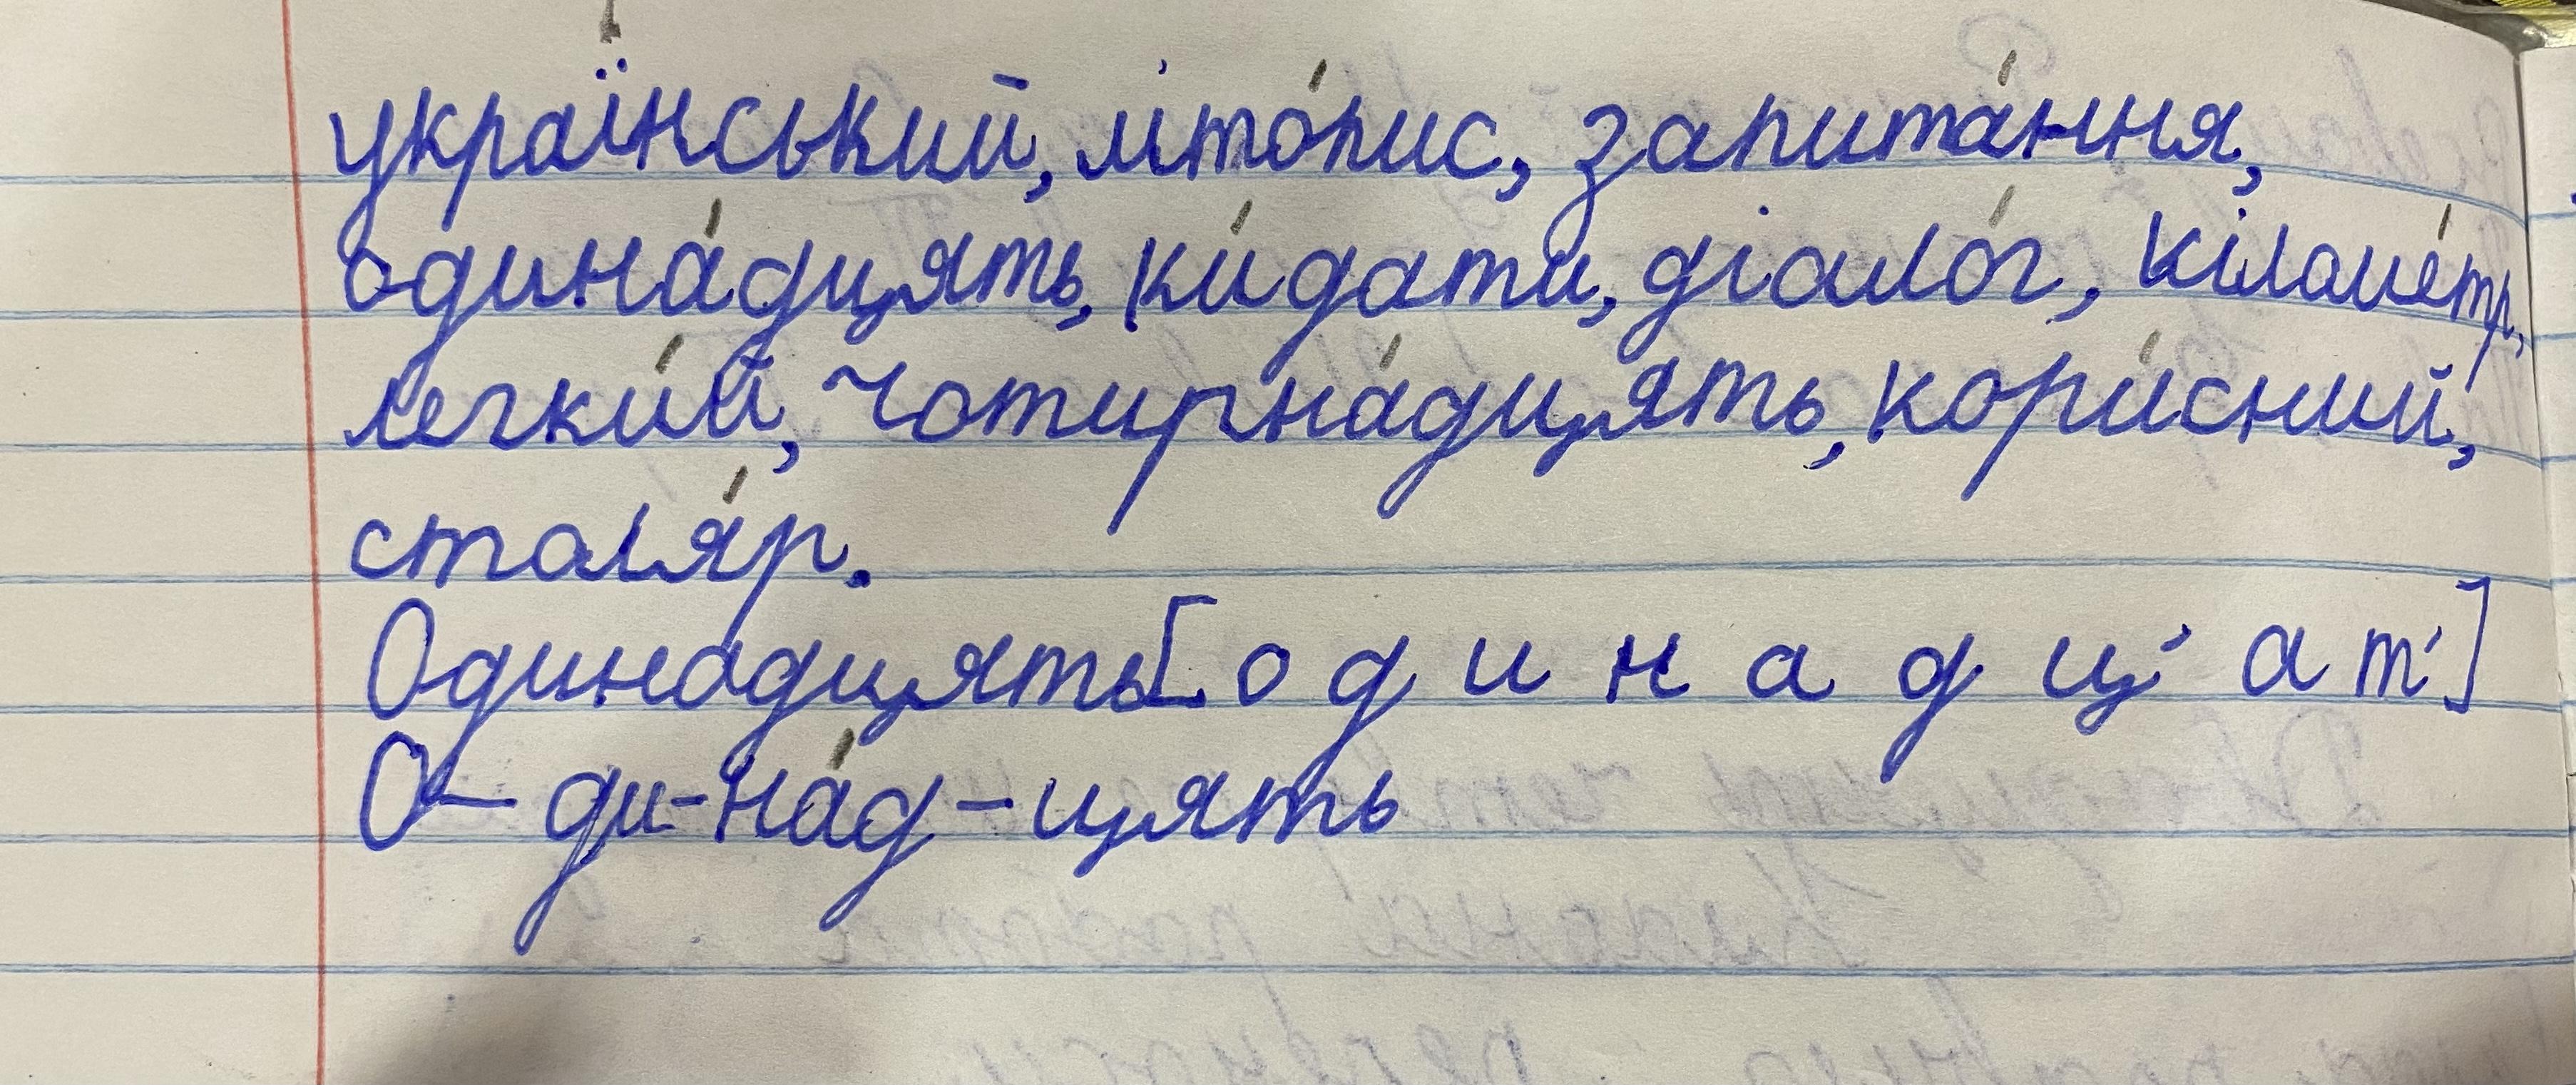 украї́нський, літо́пис, запита́ння,
одина́дцять, ки́дати, діало́г, кіломе́тр,
легки́й, чотирна́дцять, кори́сний,
столя́р.
Одинадцять[о д и н а д ц' а т']
О– ди-на́д-цять